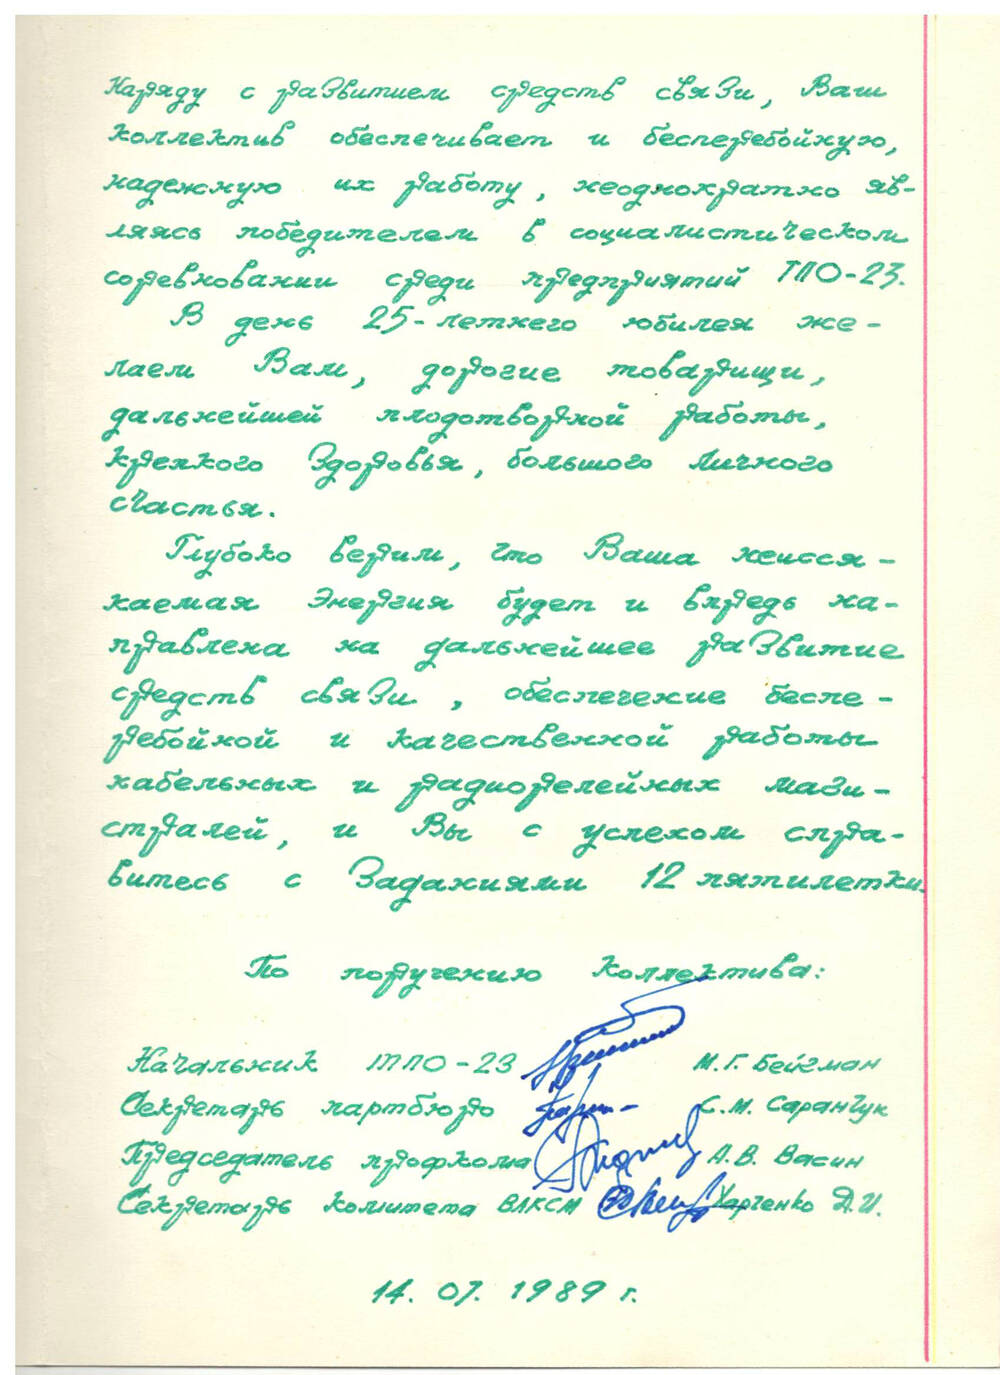 Наряду с развитием средств связи, Ваш
коллектив обеспечивает и бесперебойную,
надежную их работу, неоднократно яв-
ляясь победителем в социалистическом
соревновании среди предприятий ТПО-23.
В день 25-летнего юбилея же-
лаем Вам, дорогие товарищи,
дальнейшей плодотворной работы,
крепкого здоровья, большого личного
счастья.
Глубоко верим, что Ваша неисся-
каемая энергия будет и впредь на-
правлена на дальнейшее развитие
средств связи, обеспечение беспе-
ребойной и качественной работы
кабельных и радиорелейных маги-
стралей, и Вы с успехом спра-
витесь с заданиями 12 пятилетки.
По поручению коллектива:
Начальник ТПО-23 М.Г. Бейгман
Секретарь партбюро С.М. Саранчук
Председатель профкома А.В. Васин
Секретарь комитета ВЛКСМ Харченко Д.И.
14. 07. 1989 г.